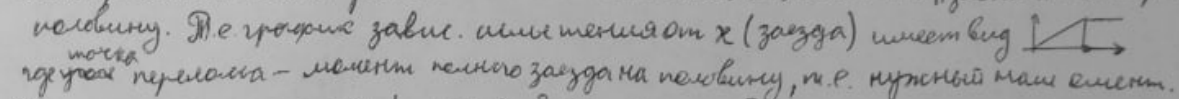 половину. Т.е график завис. изменения от x (заезда) имеет вид
где точка перелома – момент полного заезда на половину, т.е. нужный нам элемент.